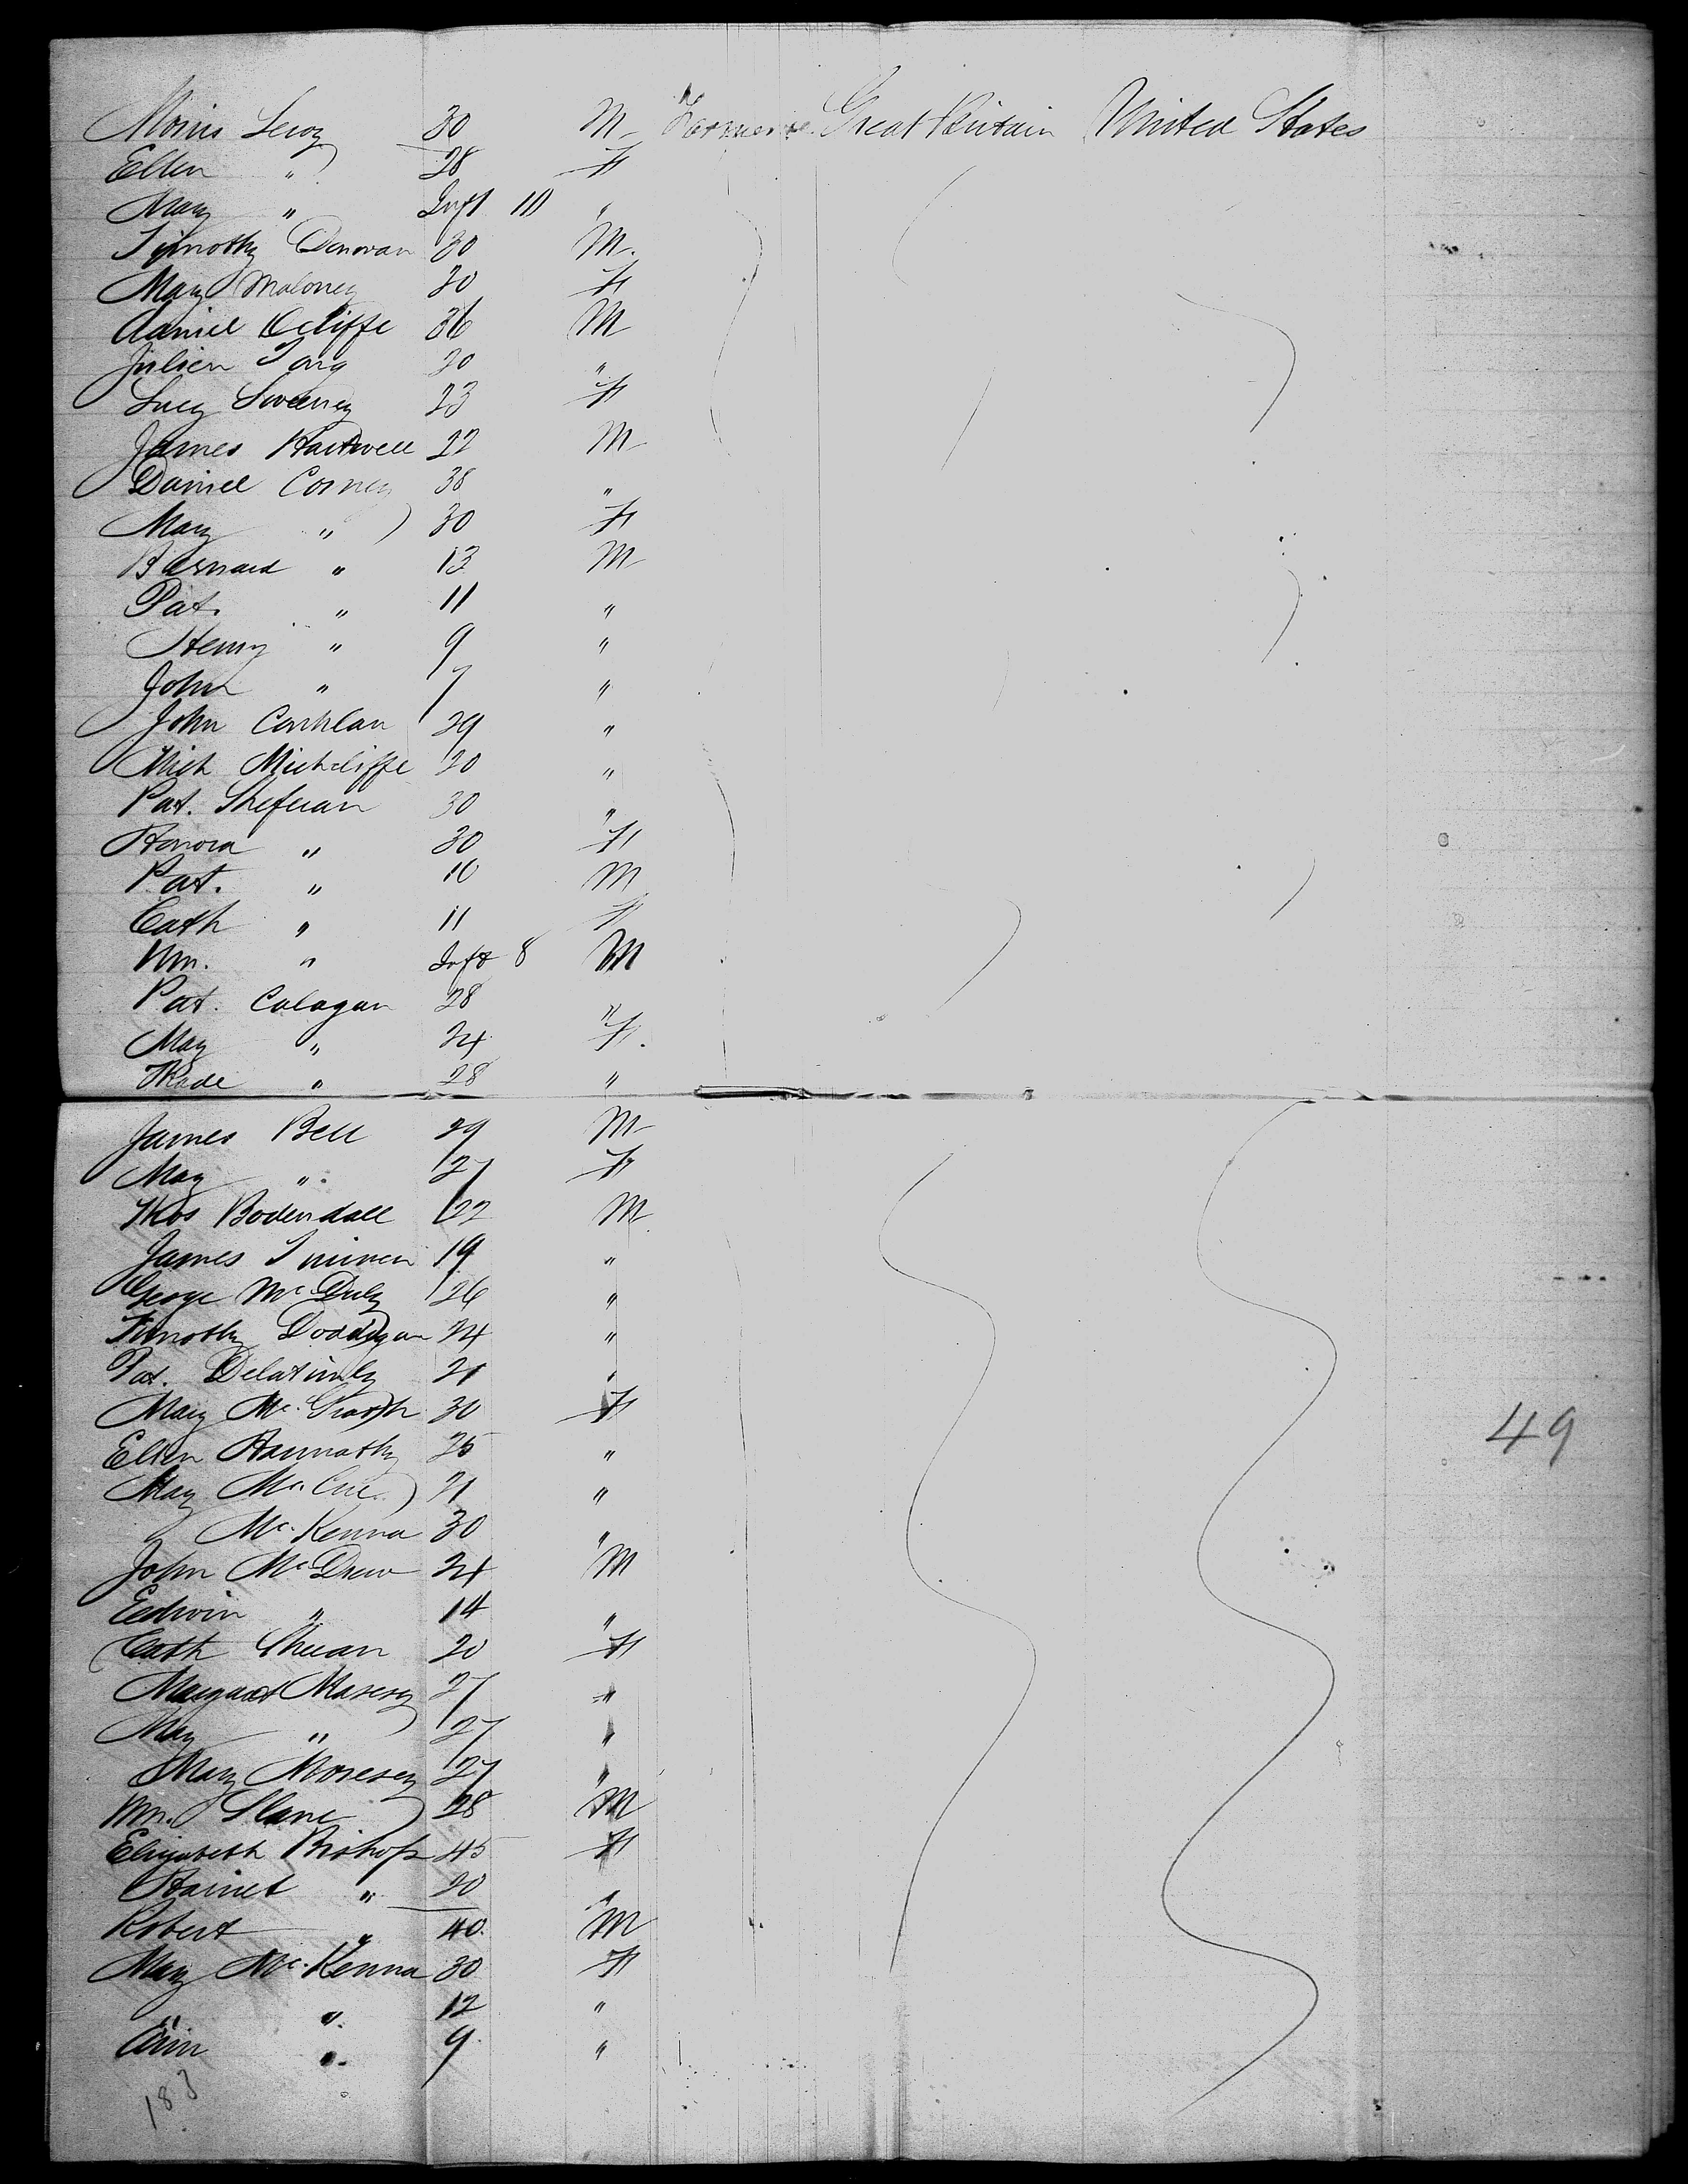 Morris Leroy 30 M Great Britain United States
Ellen " 28 F
Mary " Inft 10 "
Timothy Donovan 30 M.
Mary Maloney 20 F
Daniel 36 M
Julien 20 "
Lucy Sweeney 23 F
James Hartwell 22 M
Daniel Corney 38 "
Mary " 30 F
Bernard " 13 M
Pat. " 11 "
Henry " 9 "
John " 7 "
John 29 "
Mich 20 "
Pat. 30 "
Honora " 30 F
Pat. " 10 M
Cath " 11 F
Wm. " Inft 8 M
Pat. Calagan 28 "
Mary " 24 F.
" 28 "
James Bell 29 M
Mary " 27 F
Thos Bodendall 22 M
James 19 "
George 26 "
Timothy 24 "
Pat. 21 "
Mary 30 F
Ellen 25 "
Mary McCue 21 "
McKenna 30 "
John McDrew 24 M
Edwin " 14 "
Cath 20 F
Margaret 27 "
Mary " 27 "
Mary 27 "
Wm. Slane 28 M
Elizabeth Bishop 45 F
Harriet " 20 "
Robert " 40. M
Mary McKenna 30 F
" " 12 "
Ann " 9 "
49
183